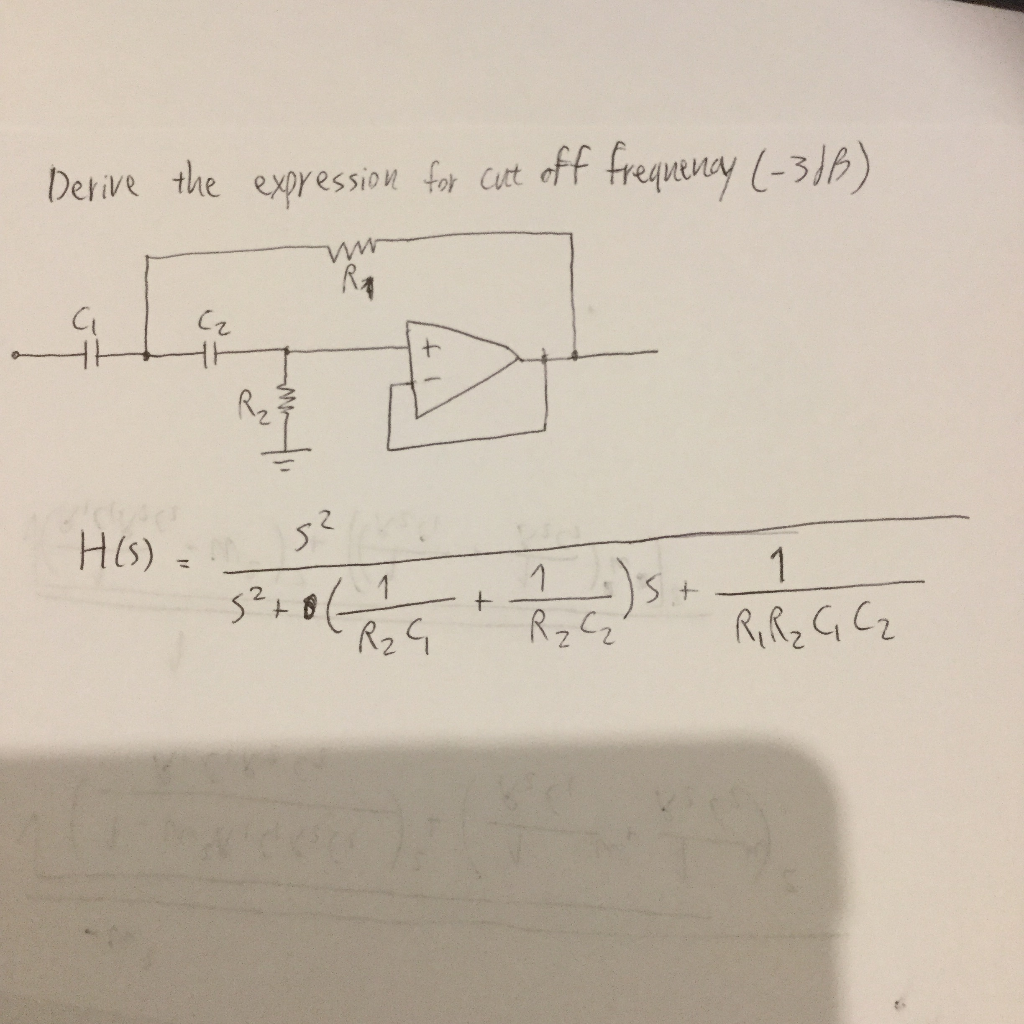 Derive the expression for cut off frequency (-3dB)
R1
C1 C2
+
−
R2
H(s) = s² / (s² + (1/(R2C1) + 1/(R2C2))s + 1/(R1R2C1C2))